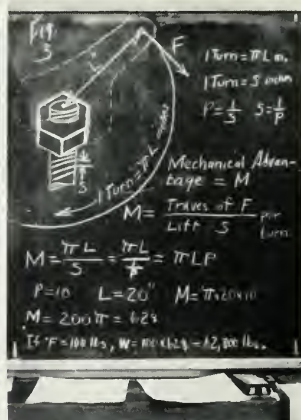 Fig.
3
L
F
1 Turn = πL in.
1 Turn = S inches
P = 1/S S = 1/P
S
1 Turn = πL inches
Mechanical Advan-
tage = M
M = Traves of F / Lift S per turn
M = πL/S = πL/(1/P) = πLP
P=10 L=20" M=π×20×10
M = 200π = 628
If F=100 lbs, W = 100×628 = 62,800 lbs.